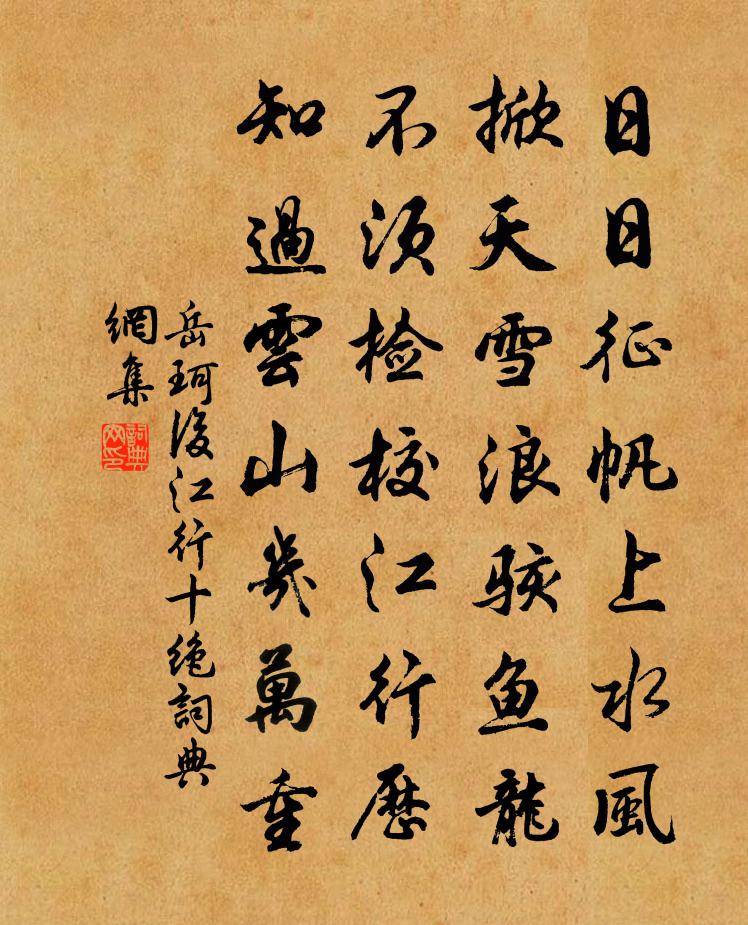 日日征帆上水風
掀天雪浪駭鱼龍
不須檢校江行歷
知過雲山幾萬重
岳珂後江行十绝詞典
網集
詞典
网印